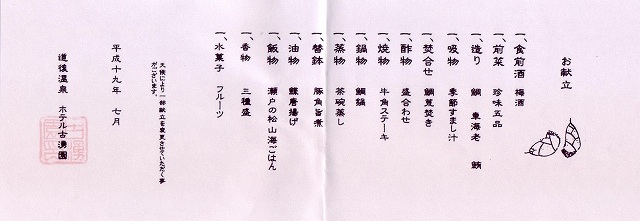 お献立
一、食前酒 梅酒
一、前菜 珍味五品
一、造り 鯛 車海老 鮪
一、吸物 季節すまし汁
一、焚合せ 鯛荒焚き
一、酢物 盛合わせ
一、焼物 牛角ステーキ
一、鍋物 鯛鍋
一、蒸物 茶碗蒸し
一、替鉢 豚角旨煮
一、油物 鰈唐揚げ
一、飯物 瀬戸の松山海ごはん
一、香物 三種盛
一、水菓子 フルーツ
天候により一部献立を変更させていただく事
がございます。
平成十九年 七月
道後温泉 ホテル古湧園